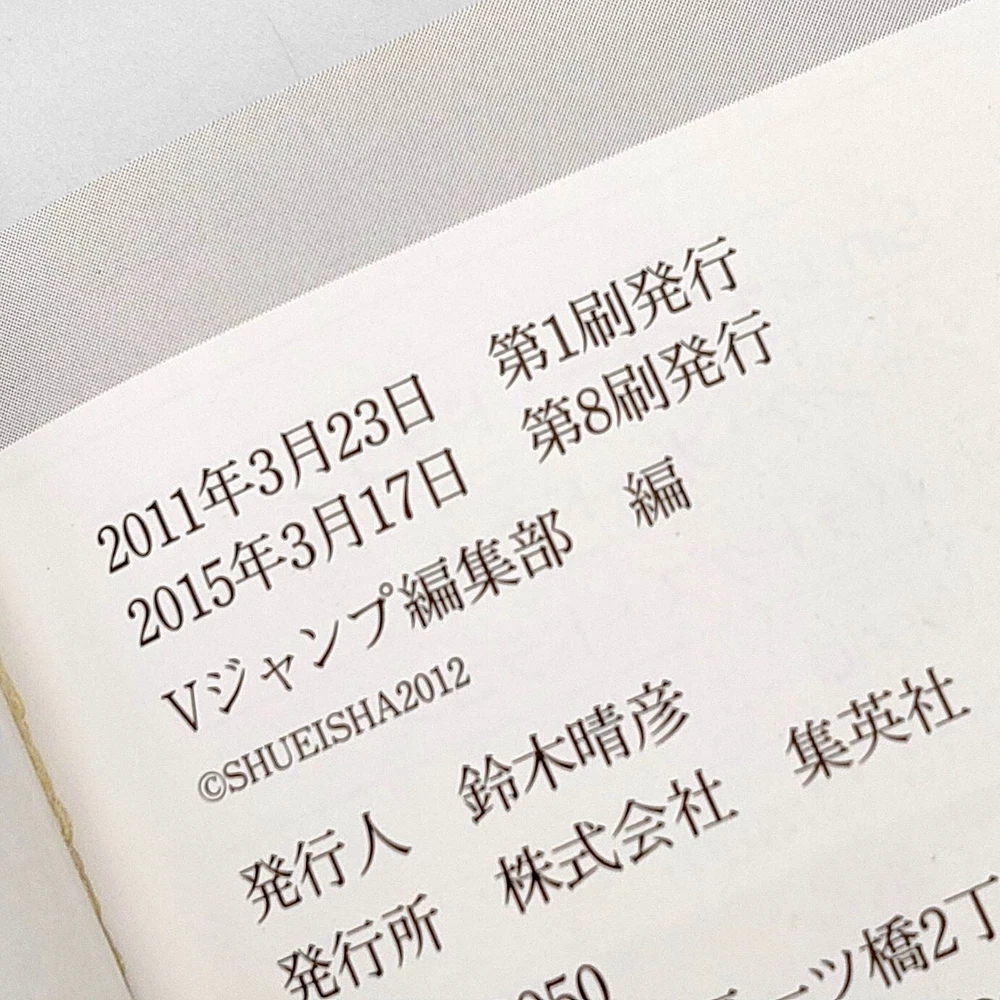 2011年3月23日　第1刷発行
2015年3月17日　第8刷発行
Vジャンプ編集部　編
©SHUEISHA2012
発行人　鈴木晴彦
発行所　株式会社　集英社
050　ーツ橋2丁